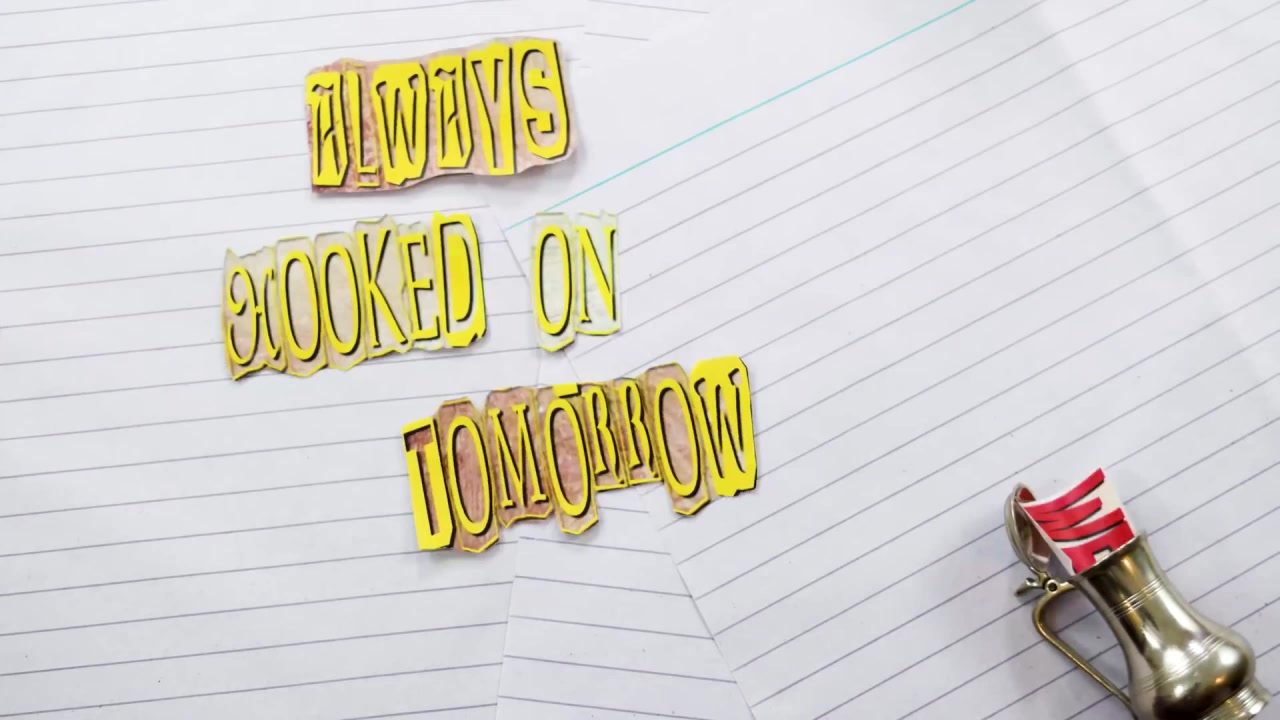 ALWAYS
HOOKED ON
TOMORROW
WE